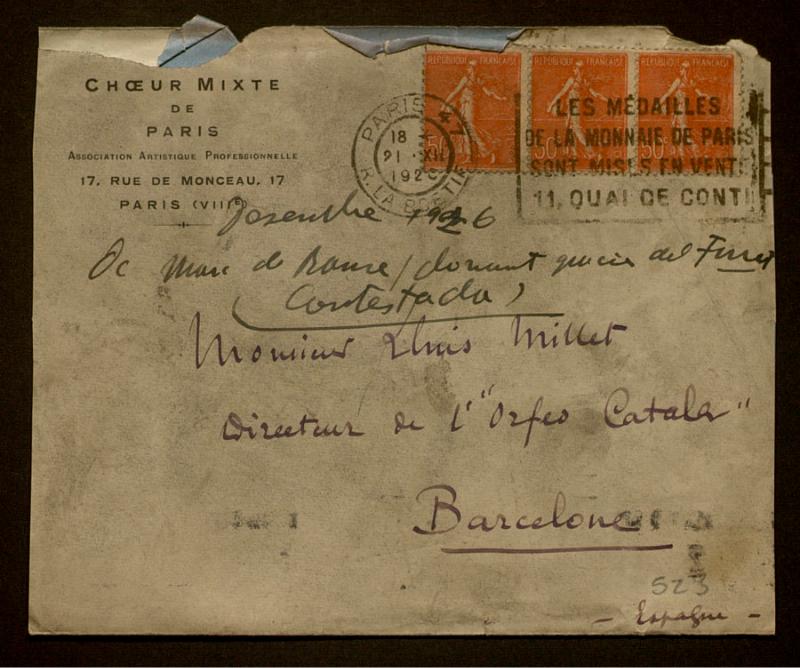 CHŒUR MIXTE
DE
PARIS
ASSOCIATION ARTISTIQUE PROFESSIONNELLE
17, RUE DE MONCEAU, 17
PARIS (VIIIe)
RÉPUBLIQUE FRANÇAISE
RÉPUBLIQUE FRANÇAISE
RÉPUBLIQUE FRANÇAISE
50c
50c
50c
PARIS 47
18
21 XII
192
R. LA BOETIE
LES MÉDAILLES
DE LA MONNAIE DE PARIS
SONT MISES EN VENTE
11, QUAI DE CONTI
1926
De Marc de
(Contestada)
Monsieur Lluis Millet
Directeur de l'"Orfeo Catala"
Barcelone
523
- Espagne -